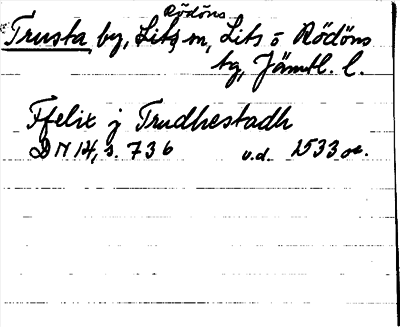 Rödöns
Trusta by, Lits sn, Lits o Rödöns
tg, Jämtl. l.
Ffelix j Trudhestadh
DN 14, s. 736 u.d. 1533 oa.